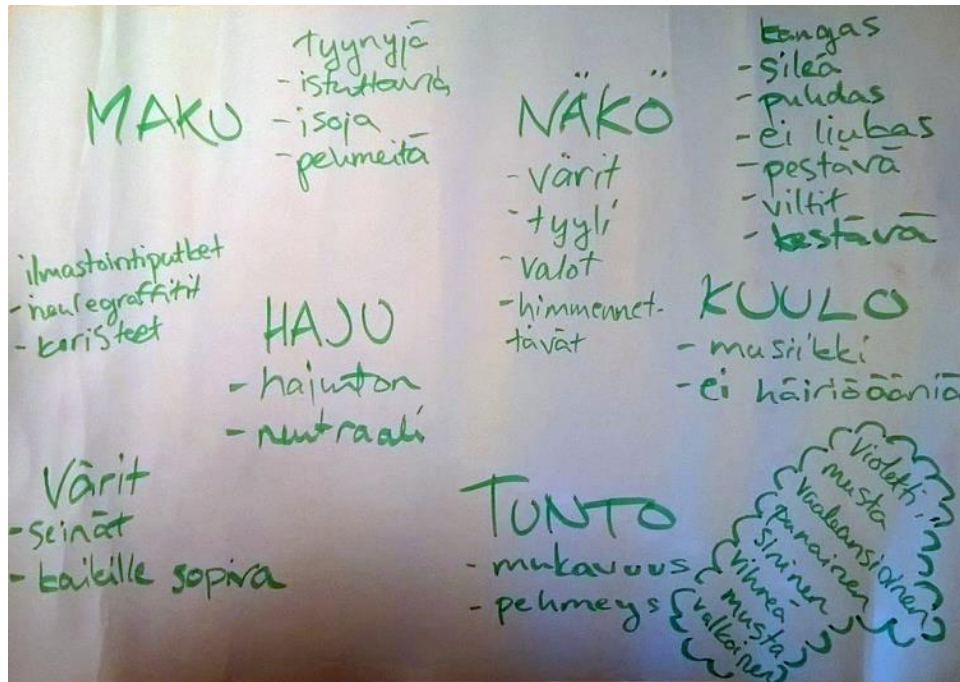 MAKU
tyynyjä
- istuttavia
- isoja
- pehmeitä
NÄKÖ
- värit
- tyyli
- valot
- himmennet-
tävät
kangas
- sileä
- puhdas
- ei liukas
- pestävä
- viltit
- kestävä
ilmastointiputket
- neulegraffitit
- koristeet
HAJU
- hajuton
- neutraali
KUULO
- musiikki
- ei häiriöääniä
Värit
- seinät
- kaikille sopiva
TUNTO
- mukavuus
- pehmeys
Violetti,
musta
vaaleansininen
punainen
sininen
vihreä
musta
valkoinen